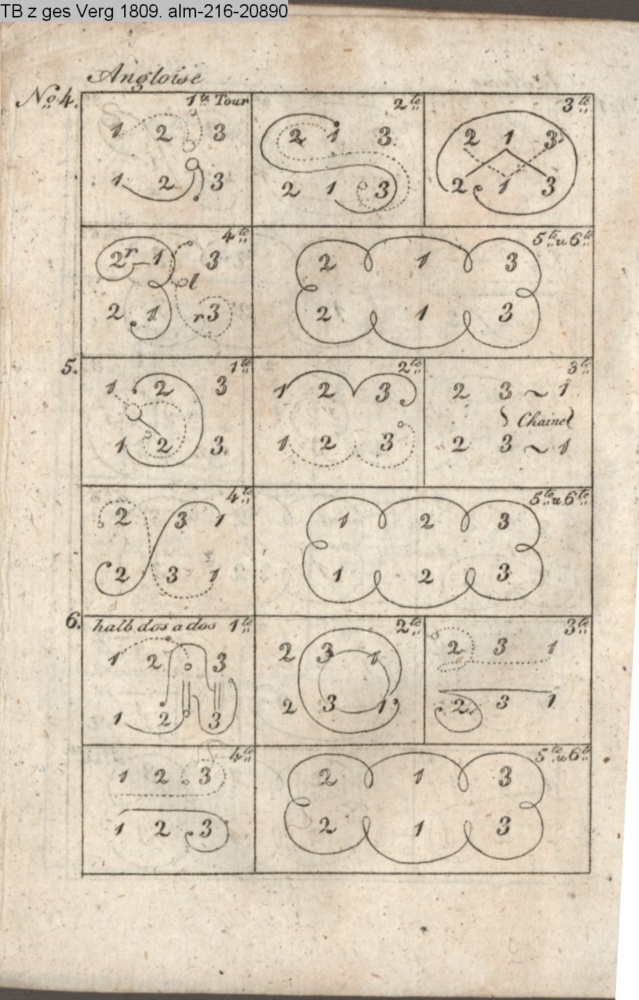 TB z ges Verg 1809. alm-216-20890
Angloise
No 4.
1te Tour
2te
3te
1 2 3
2 1 3
2 1 3
1 2 3
2 1 3
2 1 3
4te
5te u 6te
2 r 1 3
2 1 3
l
2 1 r 3
2 1 3
5.
1te
2te
3te
1 2 3
1 2 3
2 3 ~ 1
Chaine
1 2 3
1 2 3
2 3 ~ 1
4te
5te u 6te
2 3 1
1 2 3
2 3 1
1 2 3
6.
halb dos a dos 1te
2te
3te
1 2 3
2 3 1
2 3 1
1 2 3
2 3 1
2 3 1
4te
5te u 6te
1 2 3
2 1 3
1 2 3
2 1 3